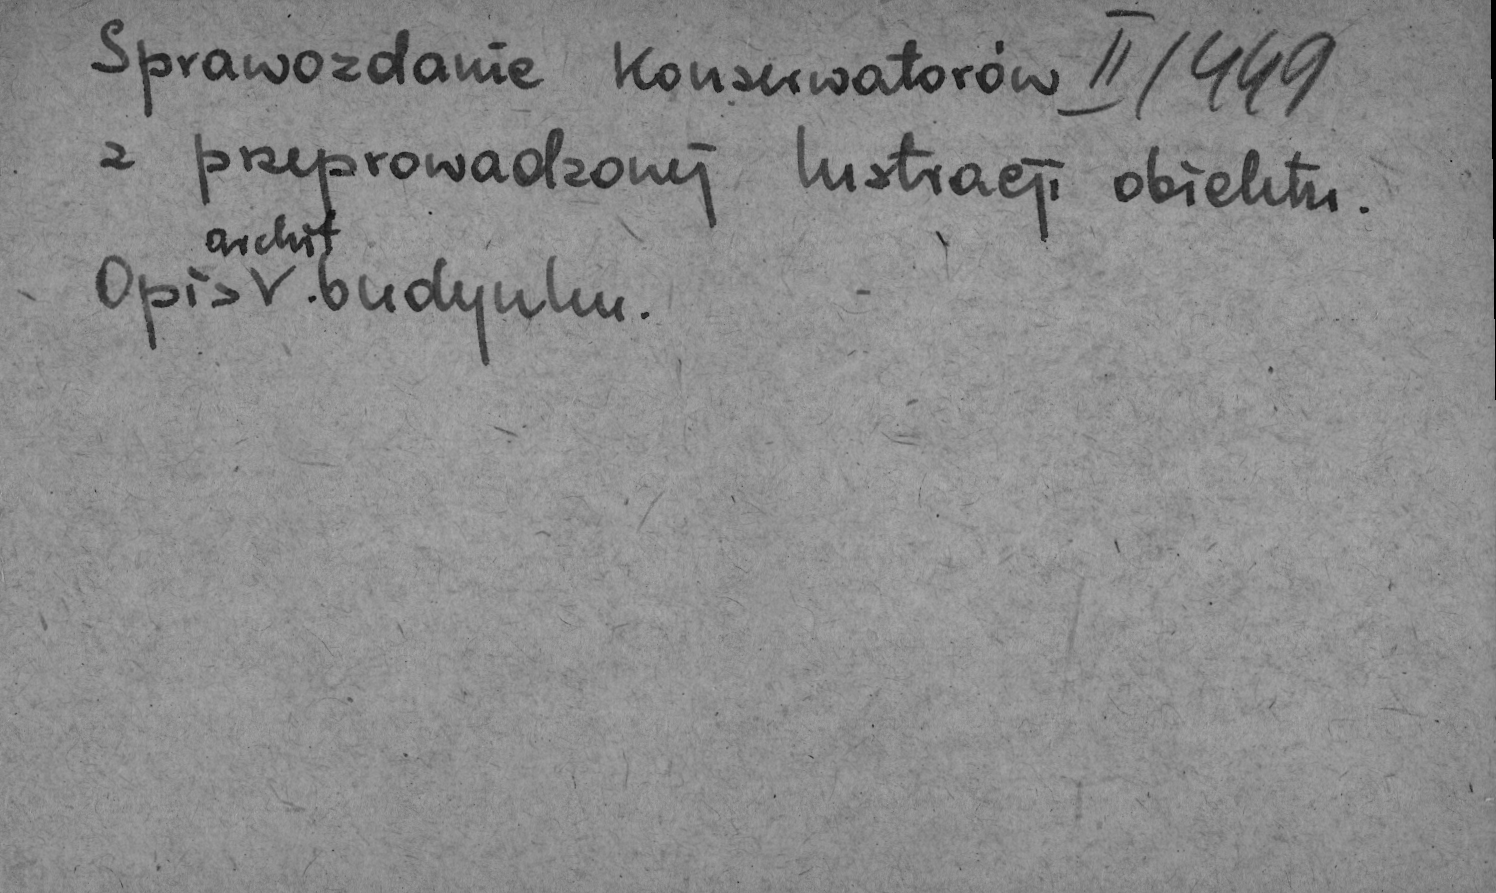 Sprawozdanie Konserwatorów II/449
z przeprowadzonej lustracji obiektu.
Opis archit. budynku.